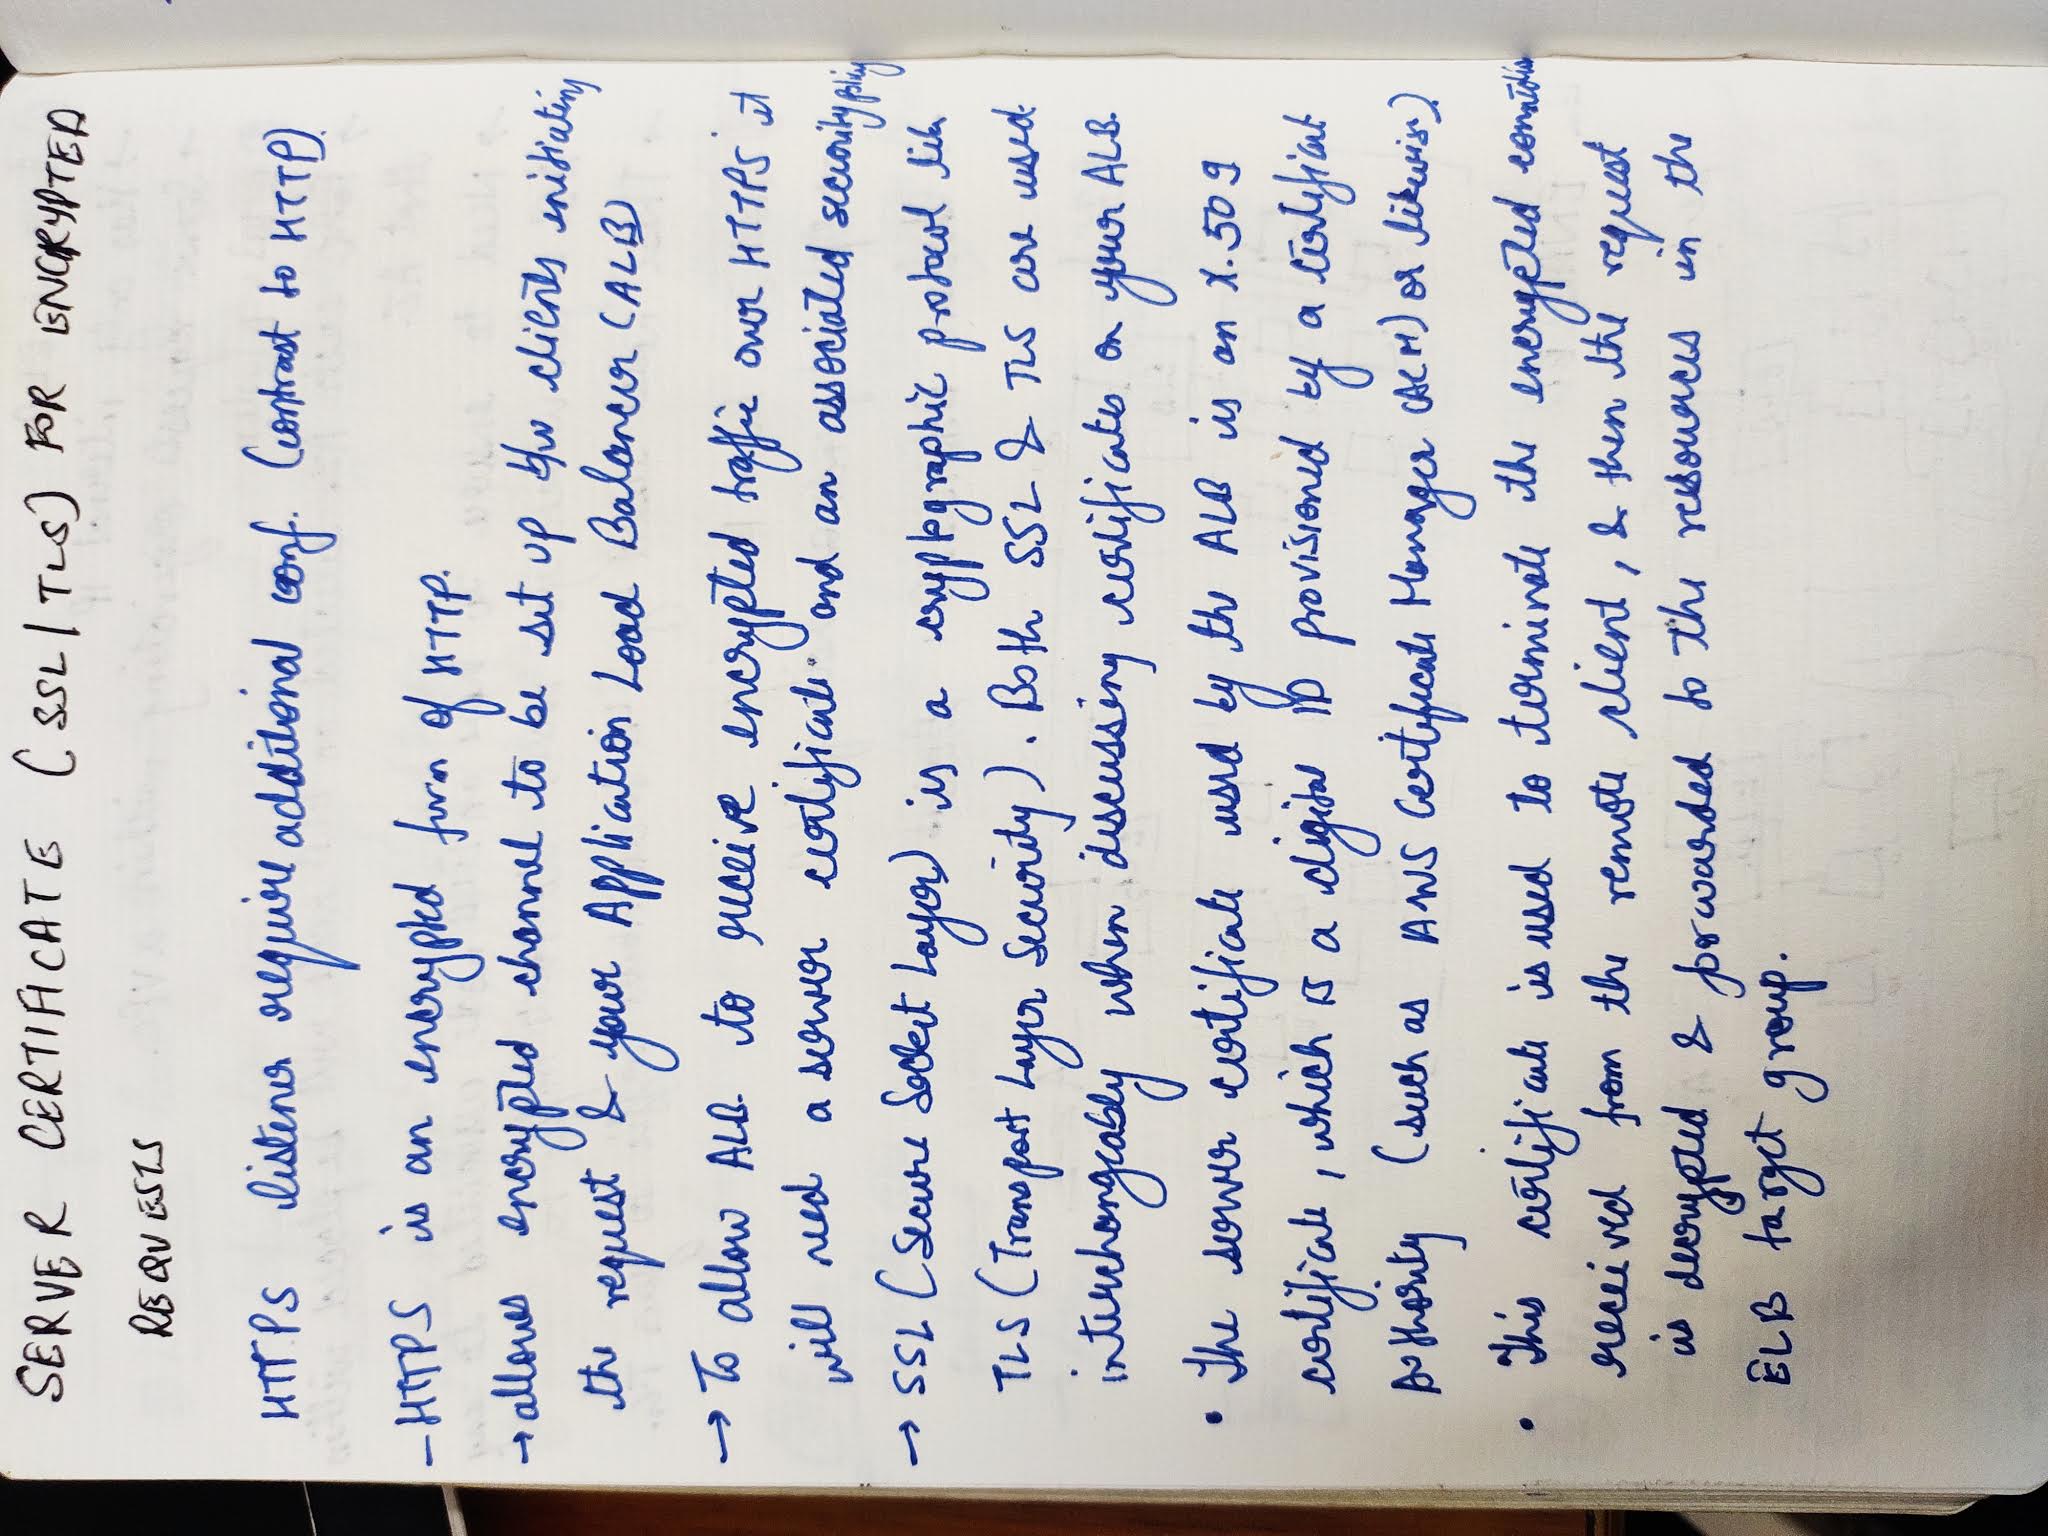 SERVER CERTIFICATE (SSL/TLS) FOR ENCRYPTED
REQUESTS
HTTPS listener require additional conf. (contrast to HTTP).
- HTTPS is an encrypted form of HTTP.
→ allows encrypted channel to be set up b/w clients enitiating
the request & your Application Load Balancer (ALB)
→ To allow ALB to receive encrypted traffic over HTTPS it
will need a server certificate and an associated security policy
→ SSL (Secure Socket Layer) is a cryptographic protocol like
TLS (Transport Layer Security). Both SSL & TLS are used
interchangeably when discussing certificates on your ALB.
• The server certificate used by the ALB is an X.509
certificate, which is a digital ID provisioned by a Certificate
Authority (such as AWS Certificate Manager (ACM) or likewise).
• This certificate is used to terminate the encrypted connection
received from the remote client, & then the request
is decrypted & forwarded to the resources in the
ELB target group.